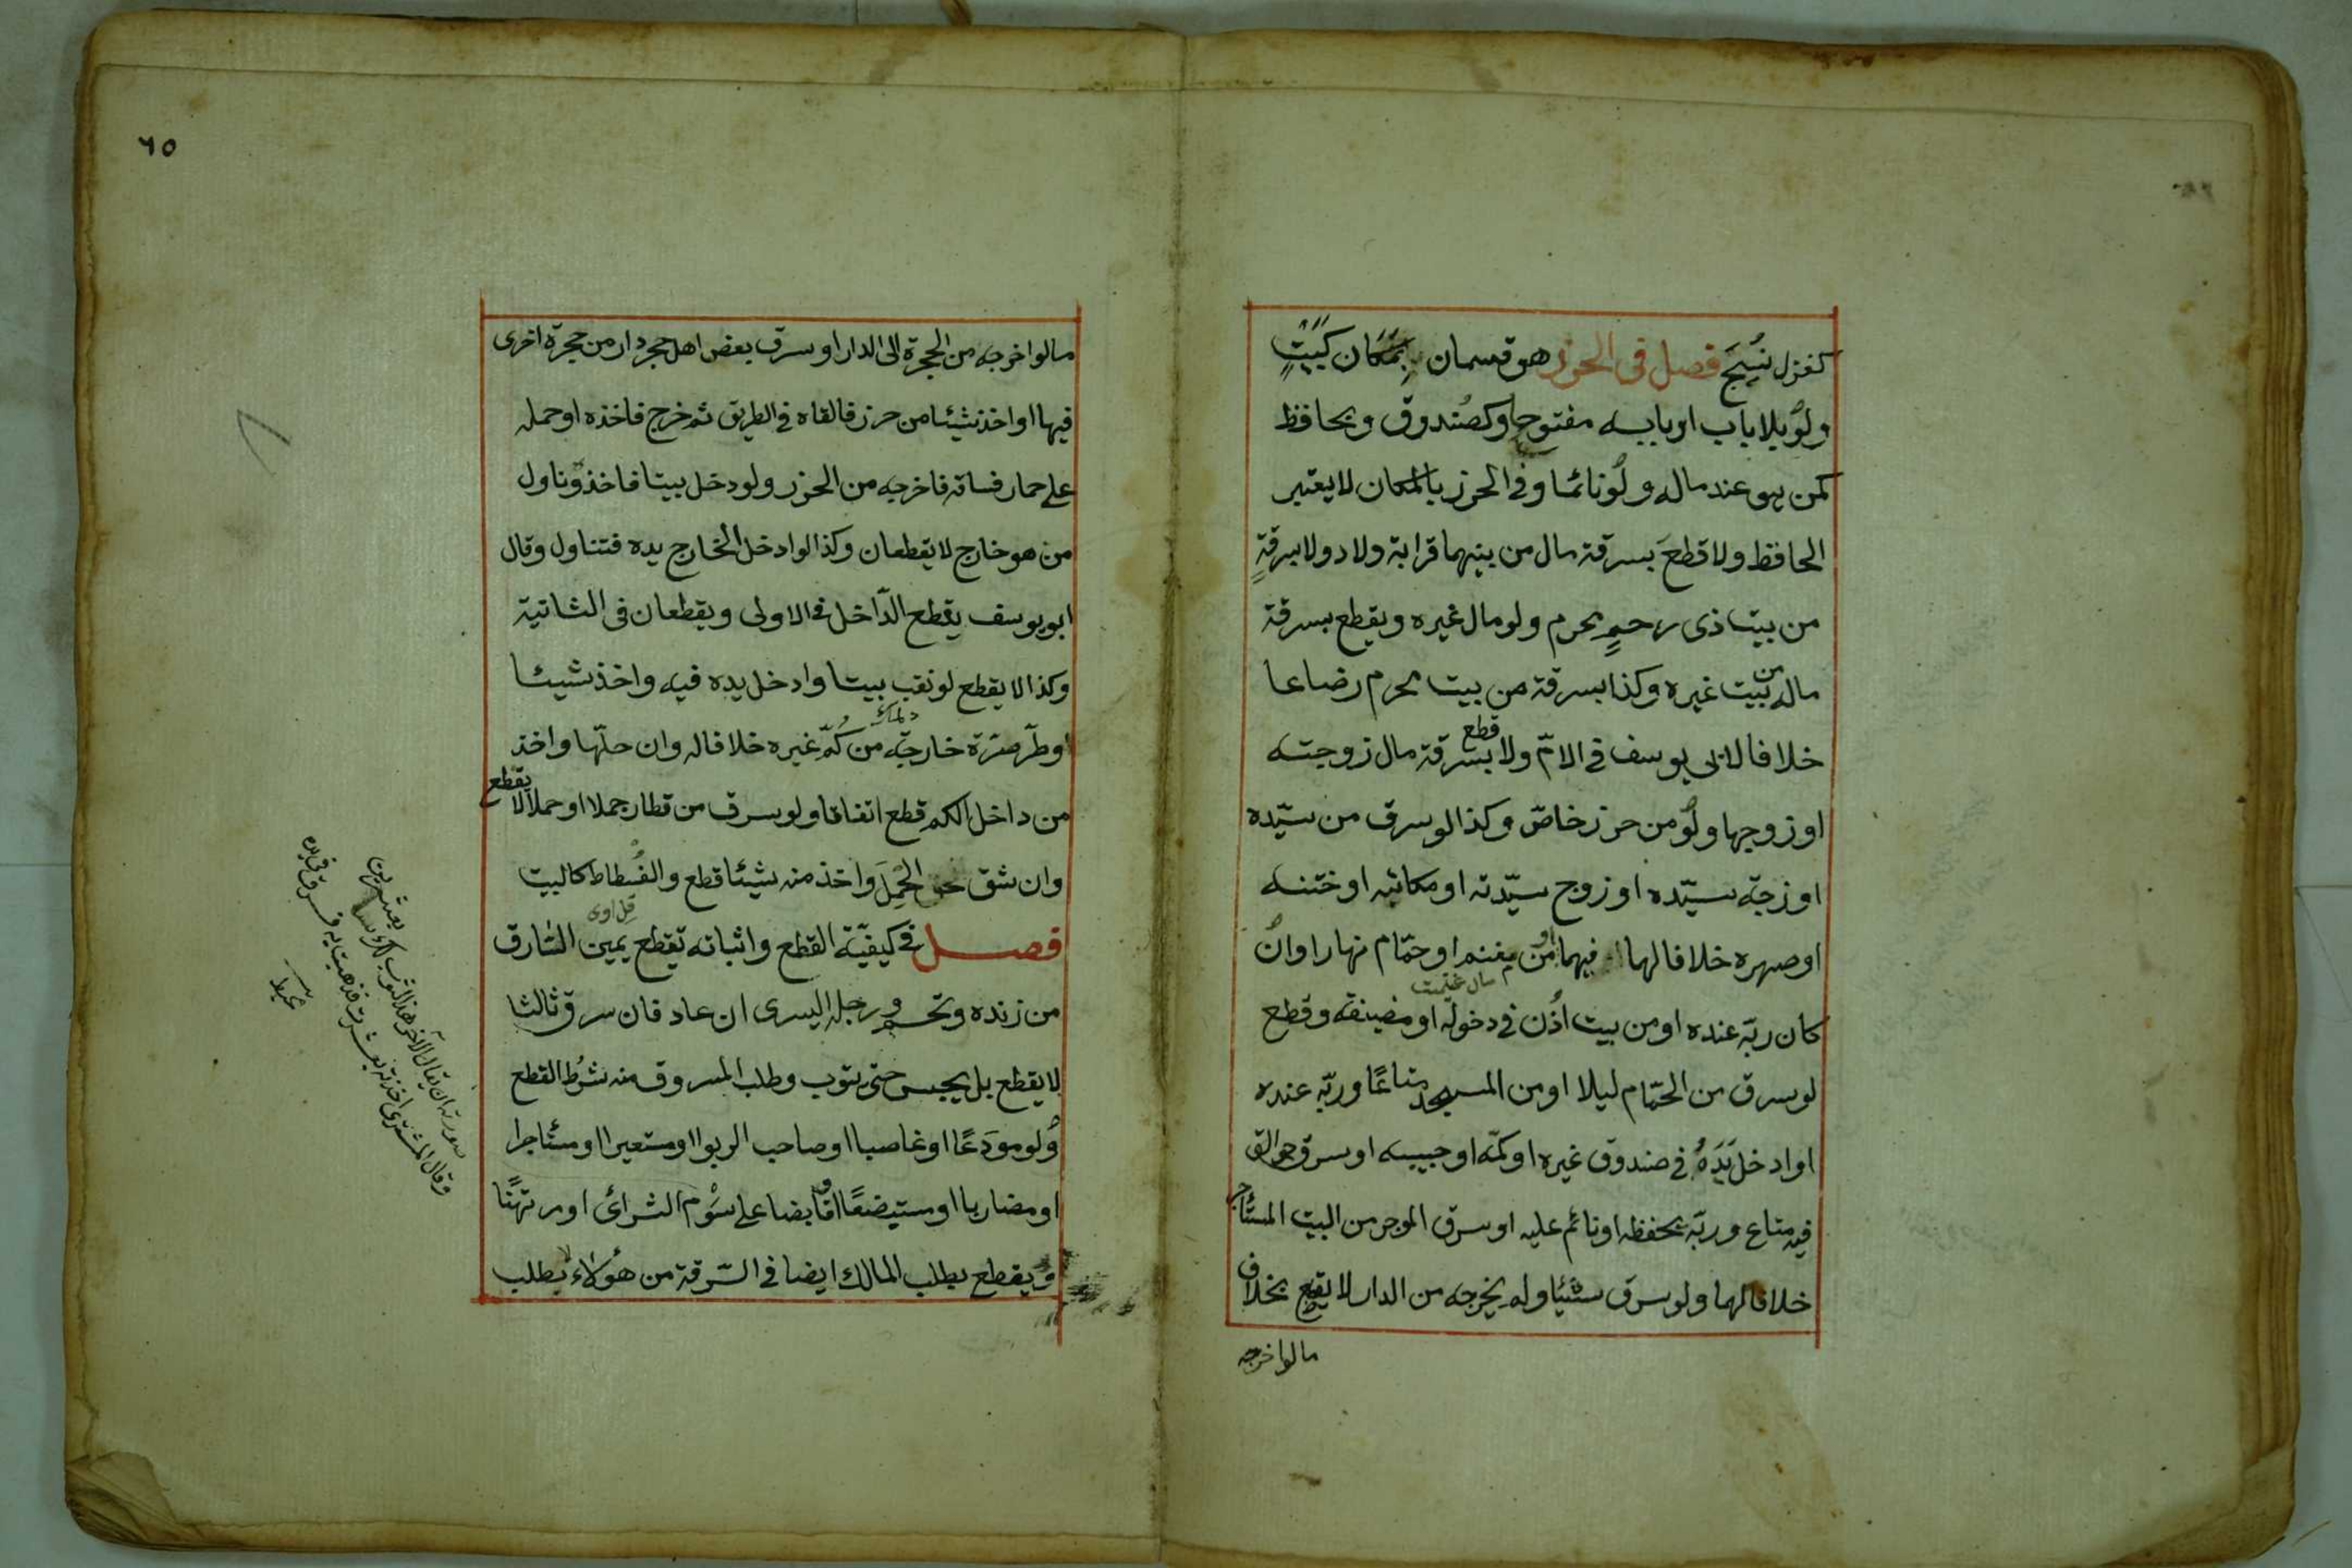 كغزل نسج فصل فى الحرز هو قسمان بمكان كبيت
ولو بلا باب او بابه مفتوح او كصندوق وبحافظ
كمن هو عند ماله ولو نائما وفى الحرز بالمكان لا يعتبر
الحافظ ولا قطع بسرقة مال من بينهما قرابة ولاد ولا بسرقةٍ
من بيت ذى رحمٍ محرم ولو مال غيره ويقطع بسرقة
ماله من بيت غيره وكذا بسرقة من بيت محرم رضاعا
خلافا لابى يوسف فى الامّ ولا قطع بسرقة مال زوجته
او زوجها ولو من حرز خاصّ وكذا لو سرق من سيّده
او زوجة سيّده او زوج سيّدته او مكاتبه او ختنه
او صهره خلافا لهما فيهما او من مغنم او حمّام نهارا وان
مال غنيمت
كان ربّه عنده او من بيت اُذن فى دخوله او مضيفه وقطع
لو سرق من الحمّام ليلا او من المسجد متاعًا وربّه عنده
او ادخل يَدَهُ فى صندوق غيره او كمّه او جيبه او سرق جوالق
فيه متاع وربّه يحفظه او نائم عليه او سرق الموجر من البيت المستأجر
خلافا لهما ولو سرق شيئا ولم يخرجه من الدار لا يقطع بخلاف
مالو اخرجه
٦٥
مالو اخرجه من الحجرة الى الدار او سرق بعض اهل حجر دار من حجرة اخرى
فيها او اخذ شيئا من حرز فالقاه فى الطريق ثم خرج فاخذه او حمله
على حمار فساقه فاخرجه من الحرز ولو دخل بيتا فاخذ وناول
من هو خارج لا يقطعان وكذا لو ادخل الخارج يده فتناول وقال
ابو يوسف يقطع الدّاخل فى الاولى ويقطعان فى الثانية
وكذا لا يقطع لو نقب بيتا وادخل يده فيه واخذ شيئا
او طرّ صرّة خارجة من كُمّ غيره خلافا له وان حلّها واخذ
من داخل الكم قطع اتفاقا ولو سرق من قطار جملا او حملا لا يقطع
وان شق الحِمْل واخذ منه شيئا قطع والفُسطاط كالبيت
فصل فى كيفيّة القطع واثباته تقطع يمين السّارق
من زنده وتحسم ورجله اليسرى ان عاد فان سرق ثالثا
لا يقطع بل يحبس حتى يتوب وطلب المسروق منه شرط القطع
ولو مودَعًا او غاصبا او صاحب الربوا او مستعيرا او مستأجرا
او مضاربا او مستبضعًا او قابضا على سَوْم الشرائ او مرتهنًا
ويقطع بطلب المالك ايضا فى السّرقة من هؤلاء لا بطلب